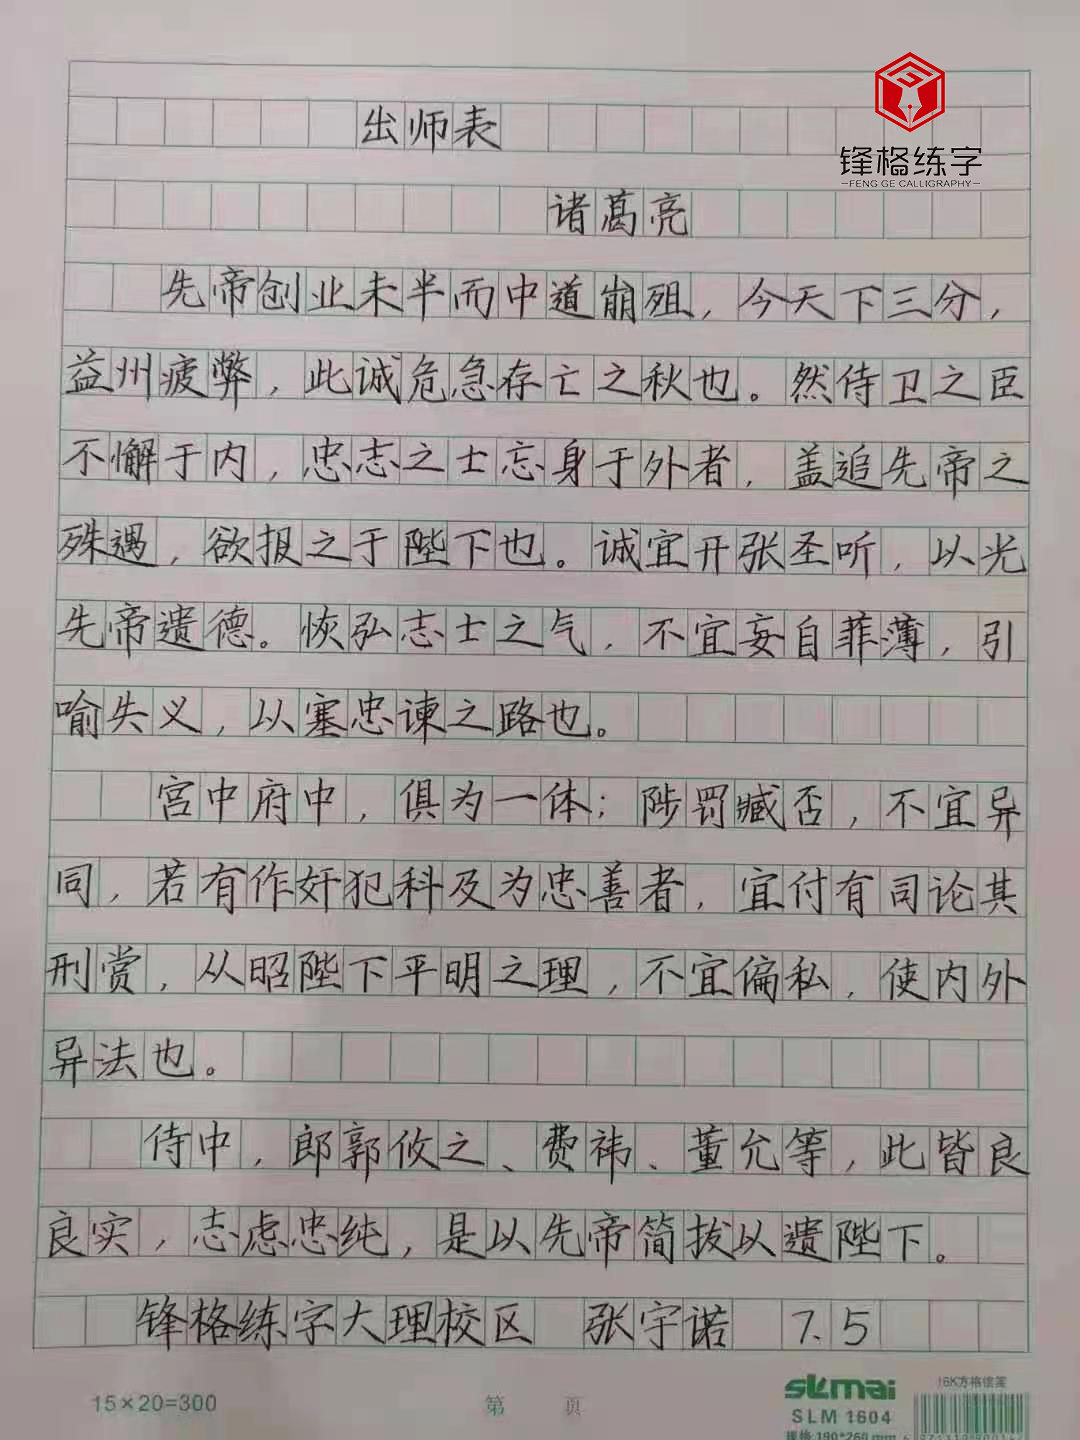 锋格练字
FENG GE CALLIGRAPHY
出师表
诸葛亮
先帝创业未半而中道崩殂，今天下三分，
益州疲弊，此诚危急存亡之秋也。然侍卫之臣
不懈于内，忠志之士忘身于外者，盖追先帝之
殊遇，欲报之于陛下也。诚宜开张圣听，以光
先帝遗德。恢弘志士之气，不宜妄自菲薄，引
喻失义，以塞忠谏之路也。
宫中府中，俱为一体；陟罚臧否，不宜异
同，若有作奸犯科及为忠善者，宜付有司论其
刑赏，从昭陛下平明之理，不宜偏私，使内外
异法也。
侍中，郎郭攸之、费祎、董允等，此皆良
良实，志虑忠纯，是以先帝简拔以遗陛下。
锋格练字大理校区 张宇诺 7.5
15×20=300
第 页
sкmai
16K方格信笺
SLM 1604
规格:190*260mm